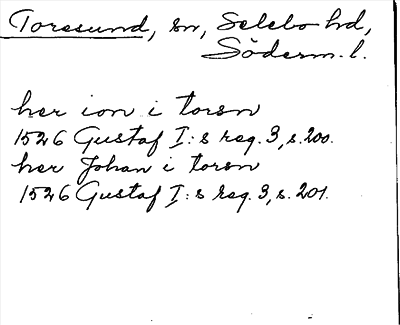 Toresund, sn, Selebo hd,
Söderm. l.
her ion i torsn
1526 Gustaf I:s reg. 3, s. 200.
her Johan i torsn
1526 Gustaf I:s reg. 3, s. 201.